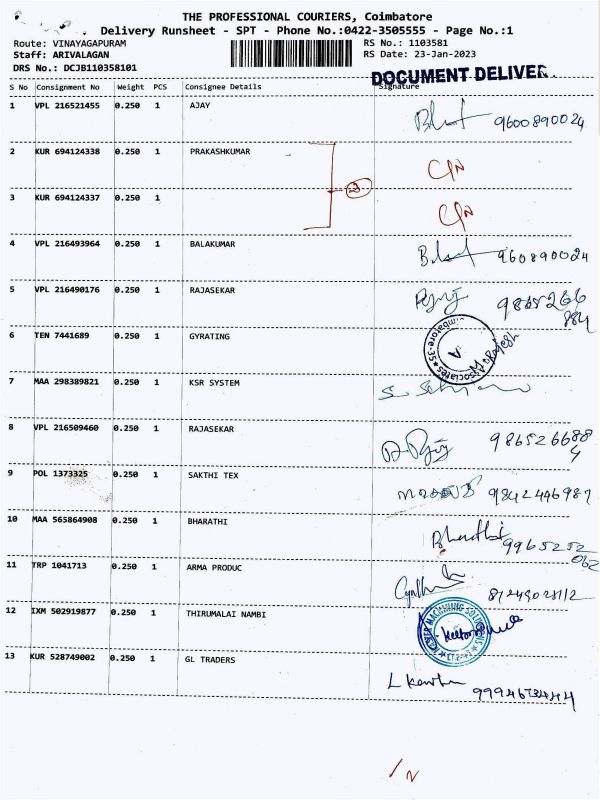 THE PROFESSIONAL COURIERS, Coimbatore
Delivery Runsheet - SPT - Phone No.:0422-3505555 - Page No.:1
Route: VINAYAGAPURAM
RS No.: 1103581
Staff: ARIVALAGAN
RS Date: 23-Jan-2023
DRS No.: DCJB110358101
DOCUMENT DELIVER.
S No Consignment No Weight PCS Consignee Details Signature
1 VPL 216521455 0.250 1 AJAY 9600890024
2 KUR 694124338 0.250 1 PRAKASHKUMAR
3 KUR 694124337 0.250 1
4 VPL 216493964 0.250 1 BALAKUMAR 960890024
5 VPL 216490176 0.250 1 RAJASEKAR 9865266
884
6 TEN 7441689 0.250 1 GYRATING
7 MAA 298389821 0.250 1 KSR SYSTEM
8 VPL 216509460 0.250 1 RAJASEKAR 986526688
4
9 POL 1373325 0.250 1 SAKTHI TEX 9842446987
10 MAA 565864908 0.250 1 BHARATHI Bharathi 9965252
062
11 TRP 1041713 0.250 1 ARMA PRODUC
12 IXM 502919877 0.250 1 THIRUMALAI NAMBI
13 KUR 528749002 0.250 1 GL TRADERS